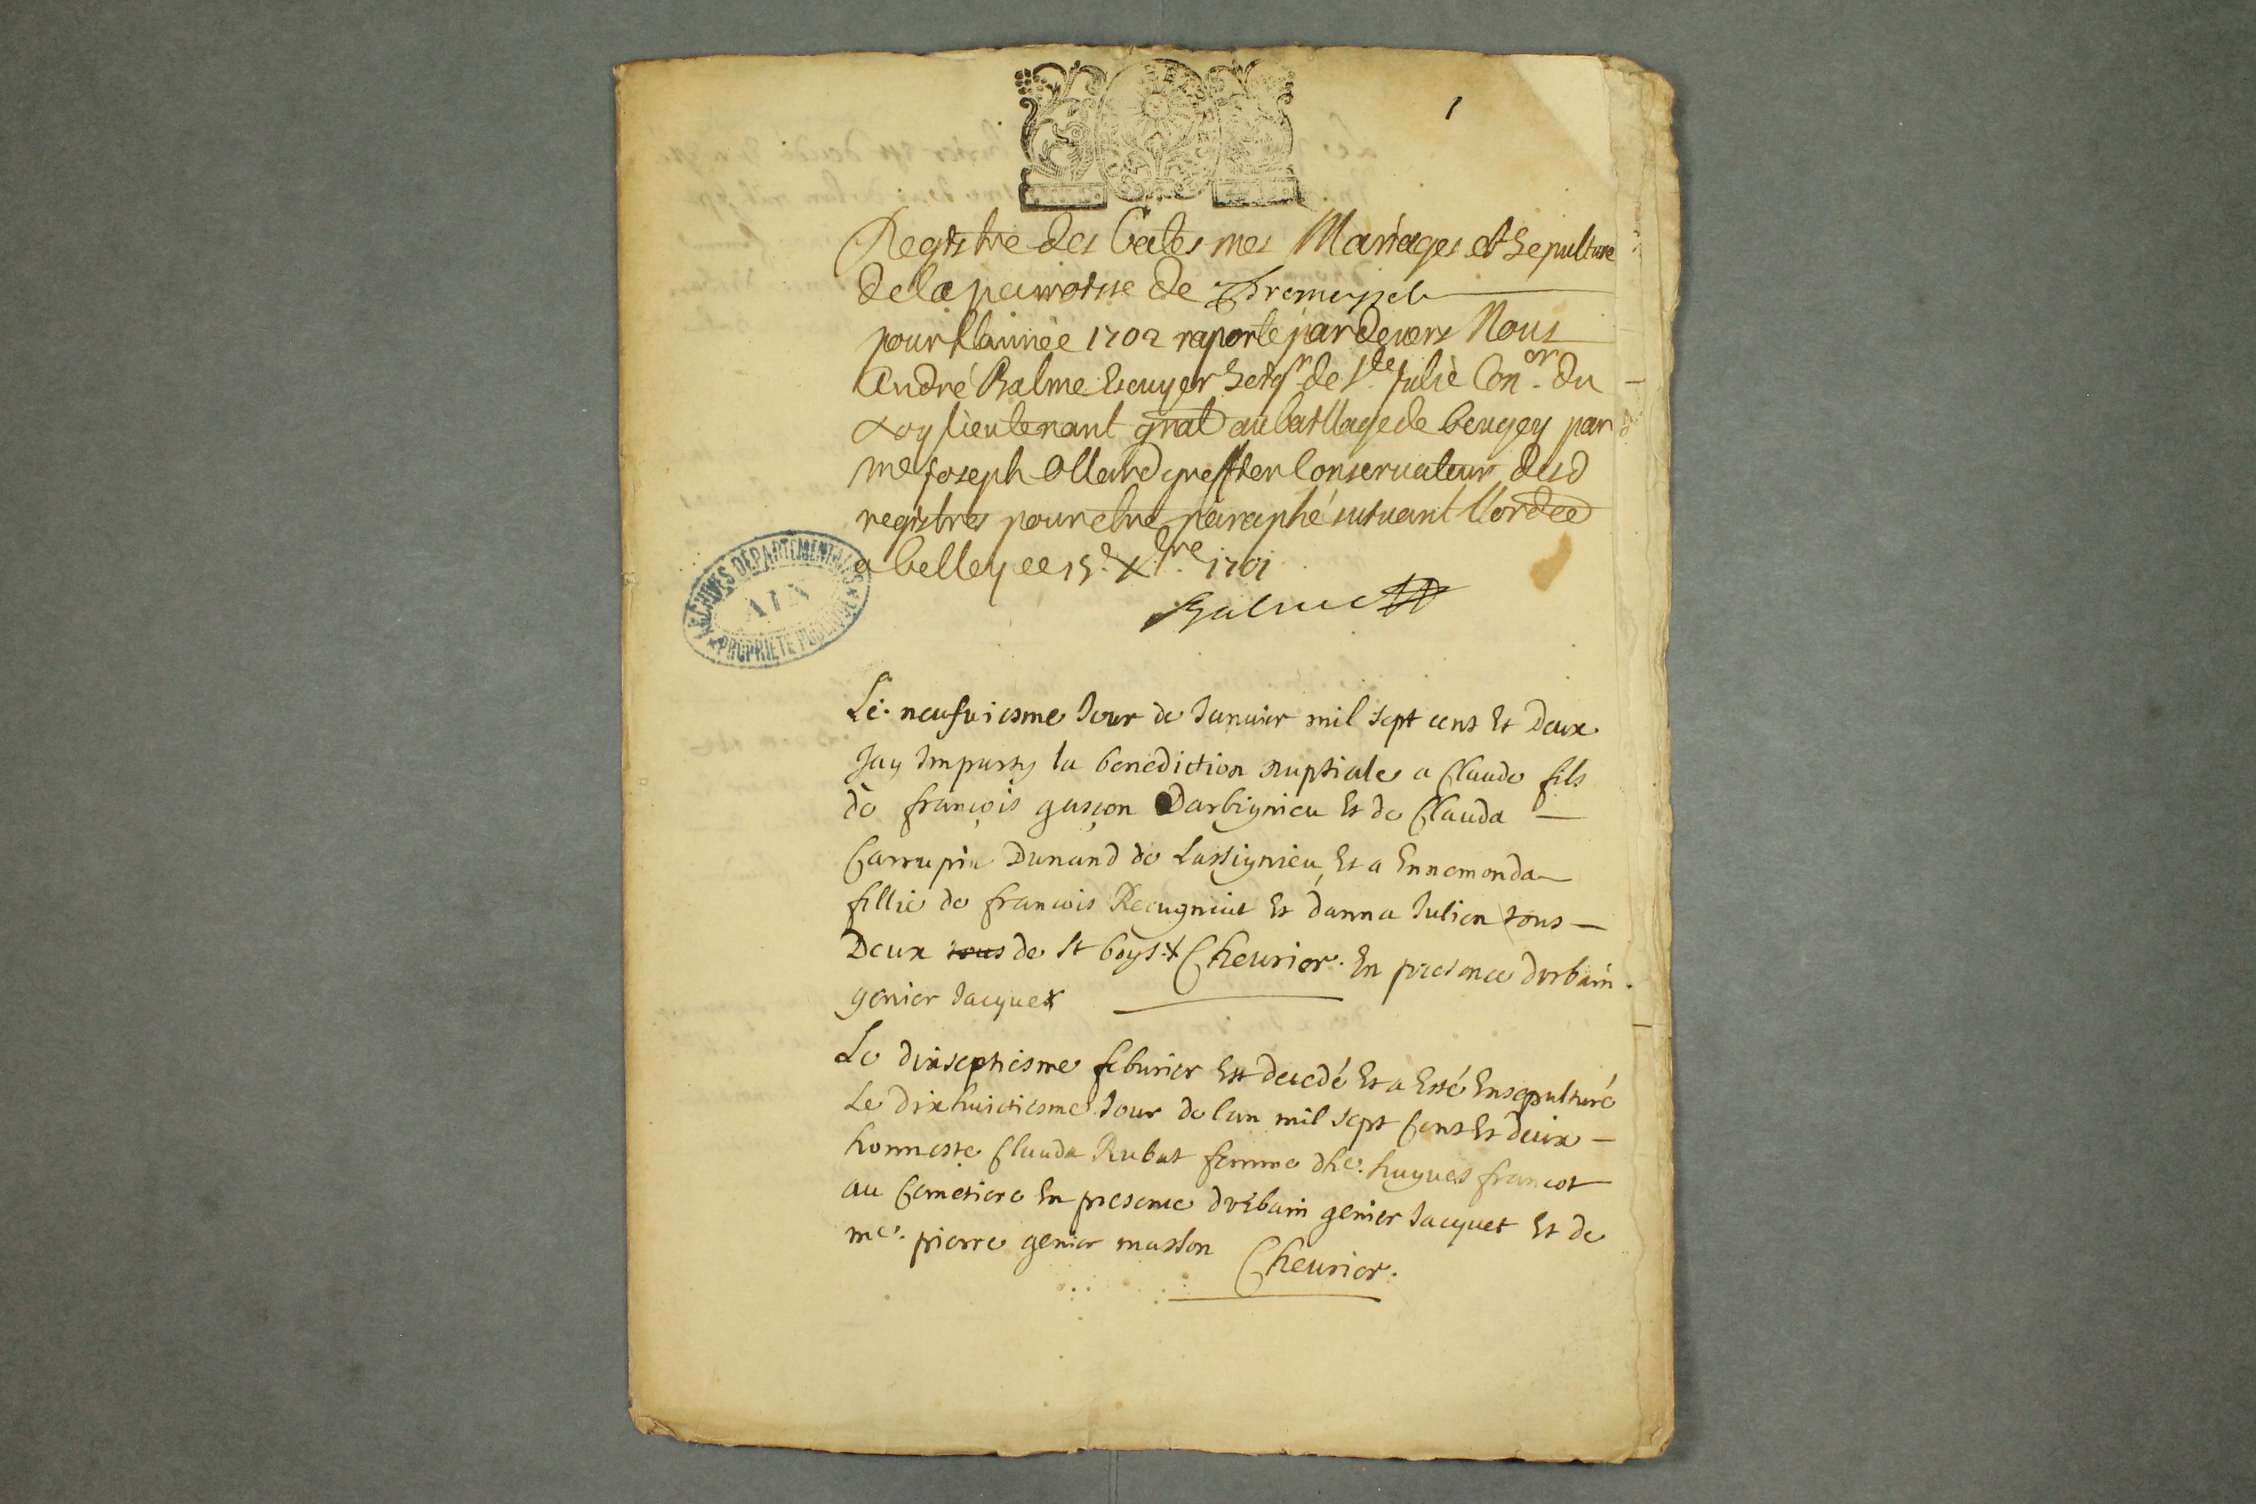 1
Registre des Batesmes Mariages et Sepulture
de la parroisse de Premeyzel
pour l'année 1702 raporté pardevers Nous
André Balme Escuyer Seigr de Ste Julie Conser du
Roy lieutenant gnal au bailliage de beugey par
Me joseph Ollard greffier Conservateur desd
registres pour estre paraphé suivant l'ordce
a belley ce 15e Xbre 1701
Balme
ARCHIVES DÉPARTEMENTALES
AIN
PROPRIÉTÉ PUBLIQUE
Le neufuiesme Jour de Januier mil sept cens Et Deux
Jay Imparty la benediction nuptiale a Claude fils
de françois gascon Darbignieu Et de Clauda
Dunand de Lassignieu, Et a Ennemonda
fillie de francois Et danna Julien tous
Deux tous de St boys + Cheurier. En presence durbain
genier Jacquet
Le dixseptiesme feburier Est decedé Et a Esté Ensepulturé
Le dixhuictiesme Jour de lan mil sept Cens Et deux
honneste Clauda Rubat femme dhe. hugues francot
au Cemetiere En presence durbain genier Jacquet Et de
me. pierre genier masson Cheurier.